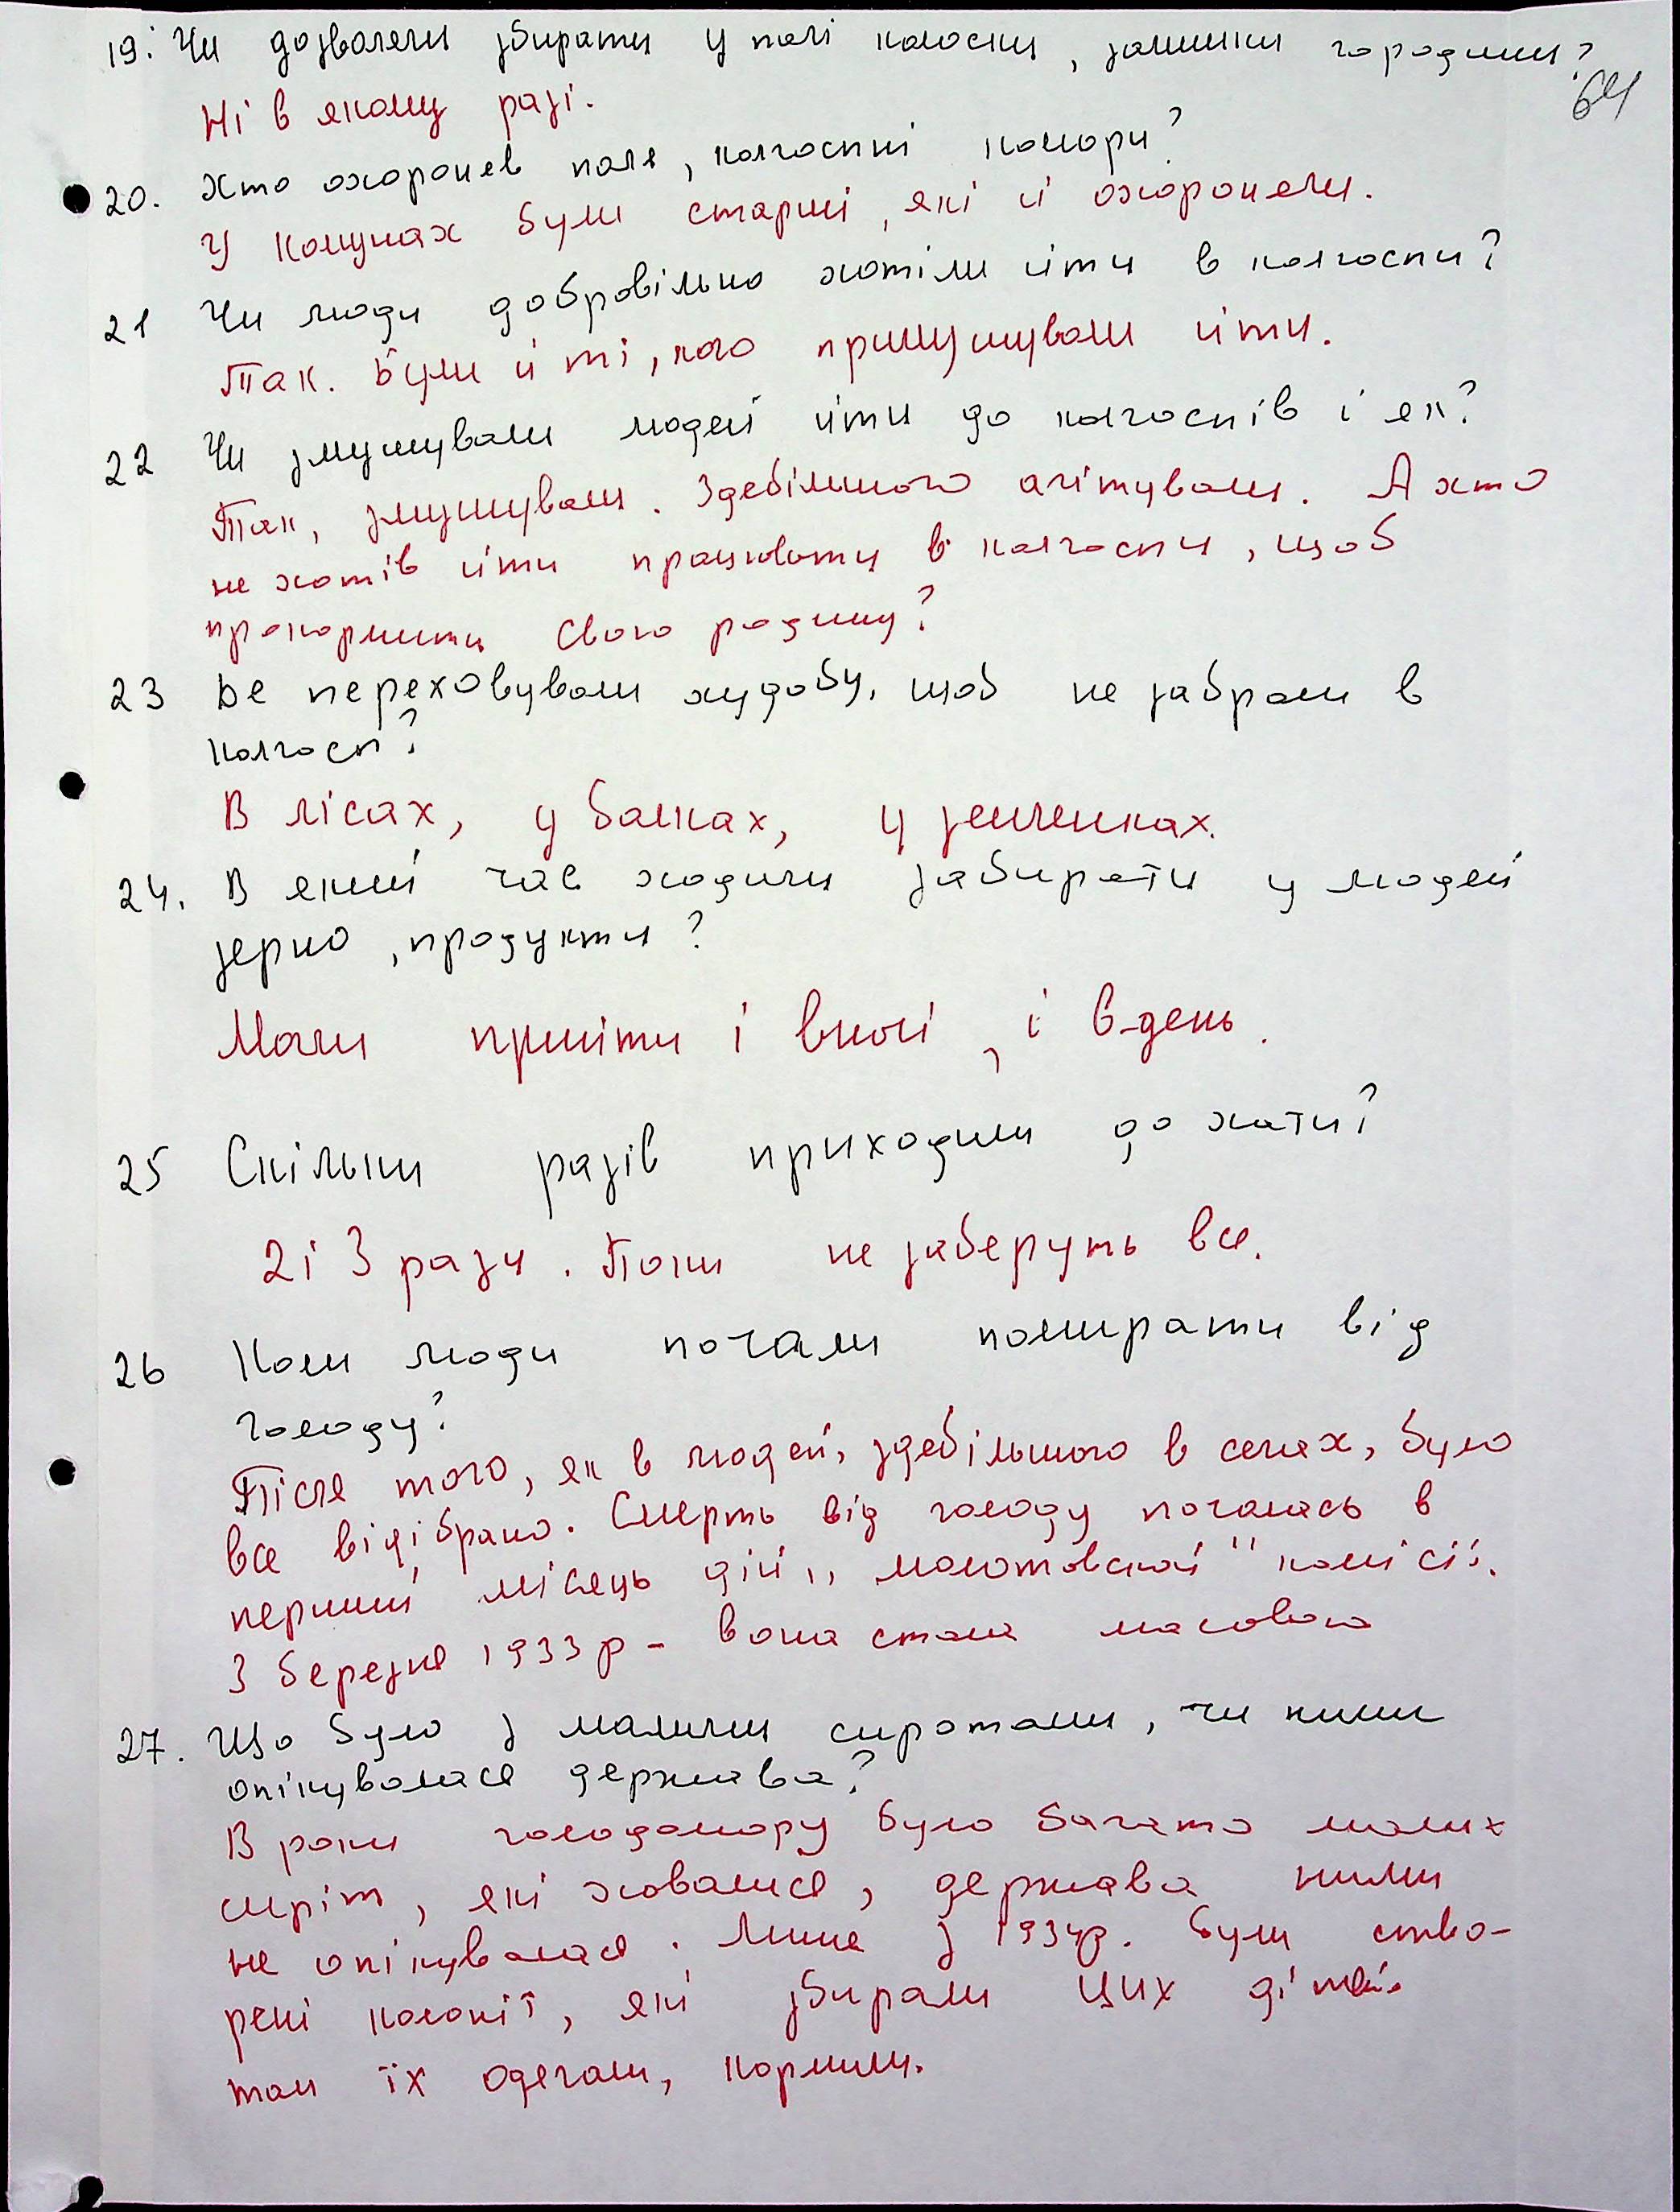 19. Чи дозволяли збирати у полі колоски, залишки городини?
64
Ні в якому разі.
20. Хто охороняв поля, колгоспні комори?
У комунах були старші, які й охороняли.
21 Чи люди добровільно хотіли йти в колгоспи?
Так. Були й ті, кого примушували йти.
22 Чи змушували людей йти до колгоспів і як?
Так, змушували. Здебільшого агітували. А хто
не хотів йти працювати в колгоспи, щоб
прокормити свою родину?
23 Де переховували худобу, щоб не забрали в
колгосп?
В лісах, у балках, у землянках.
24. В який час ходили забирати у людей
зерно, продукти?
Могли прийти і вночі, і в-день.
25 Скільки разів приходили до хати?
2 і 3 рази. Поки не заберуть все.
26 Коли люди почали помирати від
голоду?
Після того, як в людей, здебільшого в селах, було
все відібрано. Смерть від голоду почалась в
перший місяць дій „молотовської" комісії.
З березня 1933 р - вона стала масовою
27. Що було з малими сиротами, чи ними
опікувалася держава?
В роки голодомору було багато малих
сиріт, які ховалися, держава ними
не опікувалася. Лише з 1934р. були ство-
рені колонії, які збирали цих дітей.
там їх одягали, кормили.